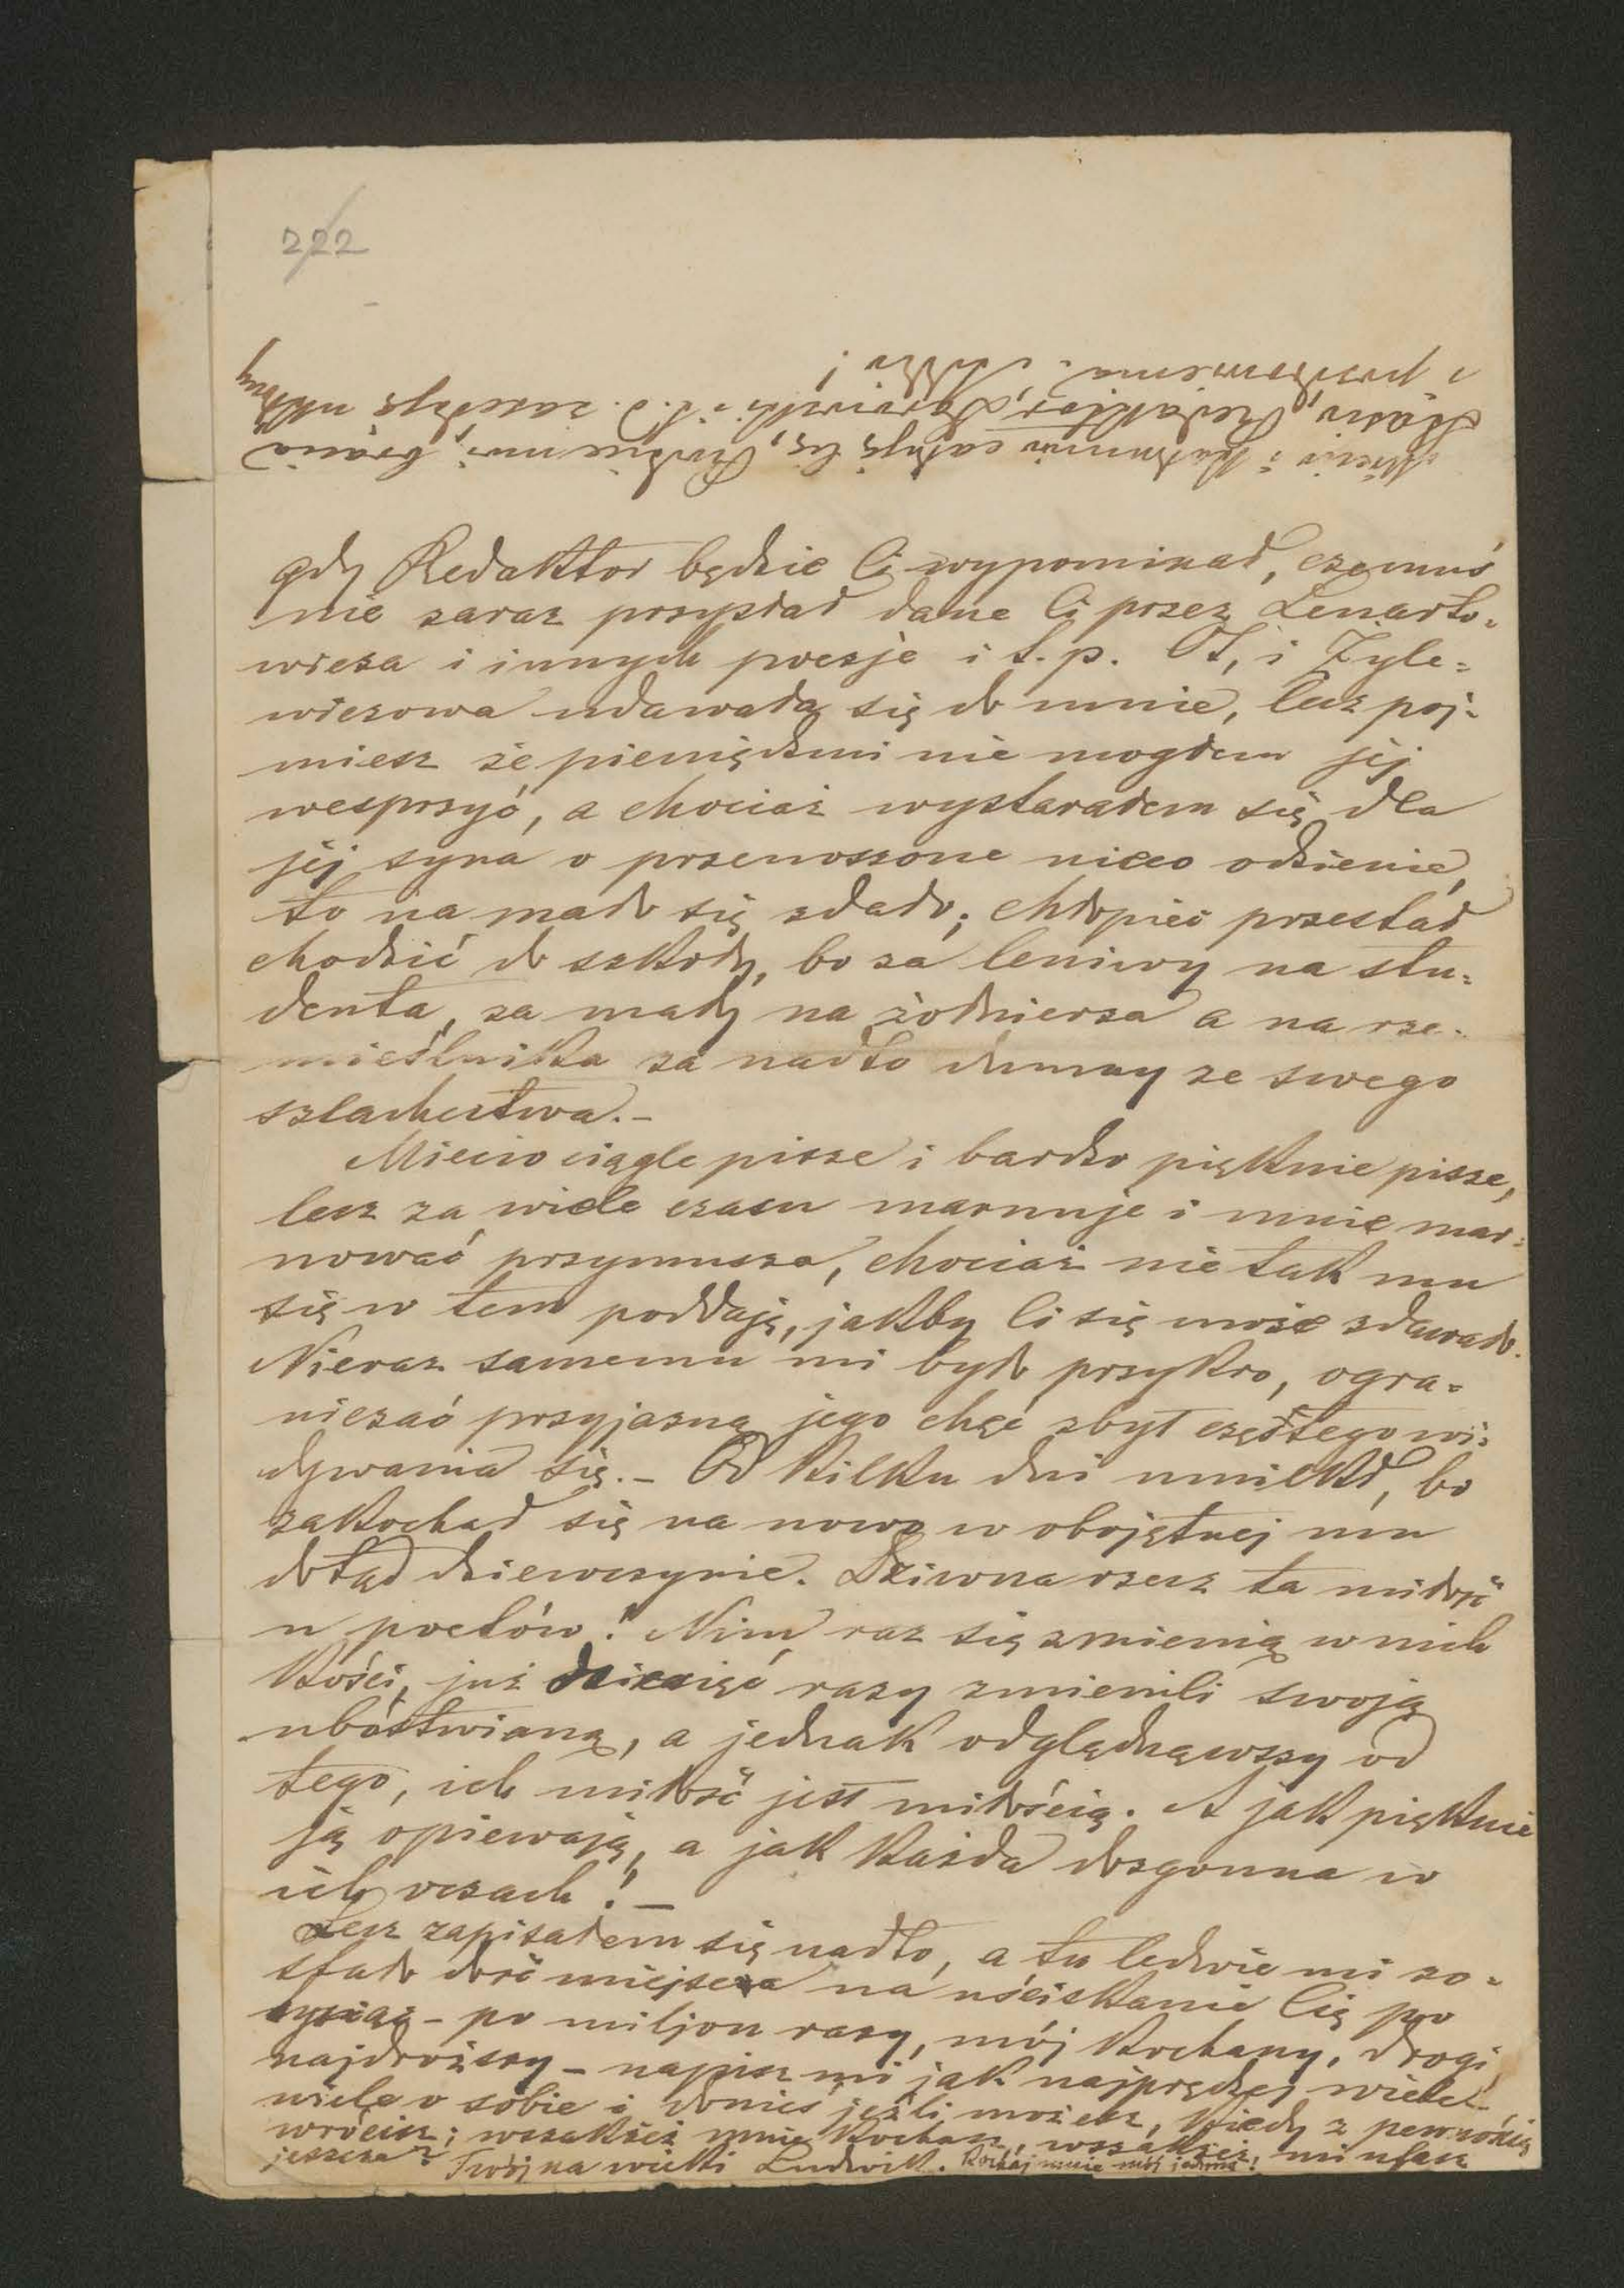 222
gdy Redaktor będzie Ci wypominał, czemuś
nie zaraz przysłał dane Ci przez Lenarto-
wicza i innych poezje i t. p. Ot, i Żyle-
wiczowa udawała się do mnie, lecz poj-
miesz że pieniędzmi nie mogłem jej
wesprzyć, a chociaż wystarałem się dla
jej syna o przenoszone nieco odzienie,
to na mało się zdało; chłopiec przestał
chodzić do szkoły, bo za leniwy na stu-
denta, za mały na żołnierza a na rze-
mieślnika za nadto dumny ze swego
szlachectwa.-
Miecio ciągle pisze i bardzo pięknie pisze,
lecz za wiele czasu marnuje i mnie mar-
nować przymusza, chociaż nie tak mu
się w tem poddaję, jakby Ci się może zdawało.
Nieraz samemu mi było przykro, ogra-
niczać przyjazną jego chęć zbyt częstego wi-
dywania się.- Od kilku dni umilkł, bo
zakochał się na nowo w obojętnej mu
dotąd dziewczynie. Dziwna rzecz ta miłość
u poetów! Nim raz się zmienią w nich
kości, już dziesięć razy zmienili swoją
ubóstwianą, a jednak odglądnąwszy od
tego, ich miłość jest miłością. A jak pięknie
ją opiewają, a jak każda dozgonna w
ich oczach! -
Lecz zapisałem się nadto, a tu ledwie mi zo-
stało dość miejsca na uściskanie Cię po
tysiąc - po miljon razy, mój kochany, drogi,
najdroższy - napisz mi jak najprędzej wiele
wiele o sobie i donieś jeśli możesz, kiedy z pewnością
wrócisz; wszakżeż mnie kochasz, wszakżeż mi ufasz
jeszcze? Twój na wieki Ludwik. Kochaj mnie mój jedyny!
Miecio i Kalumniu całują Cię,
Stasiu, Redaktor, i t. d. zasełają
i pozdrowienia.